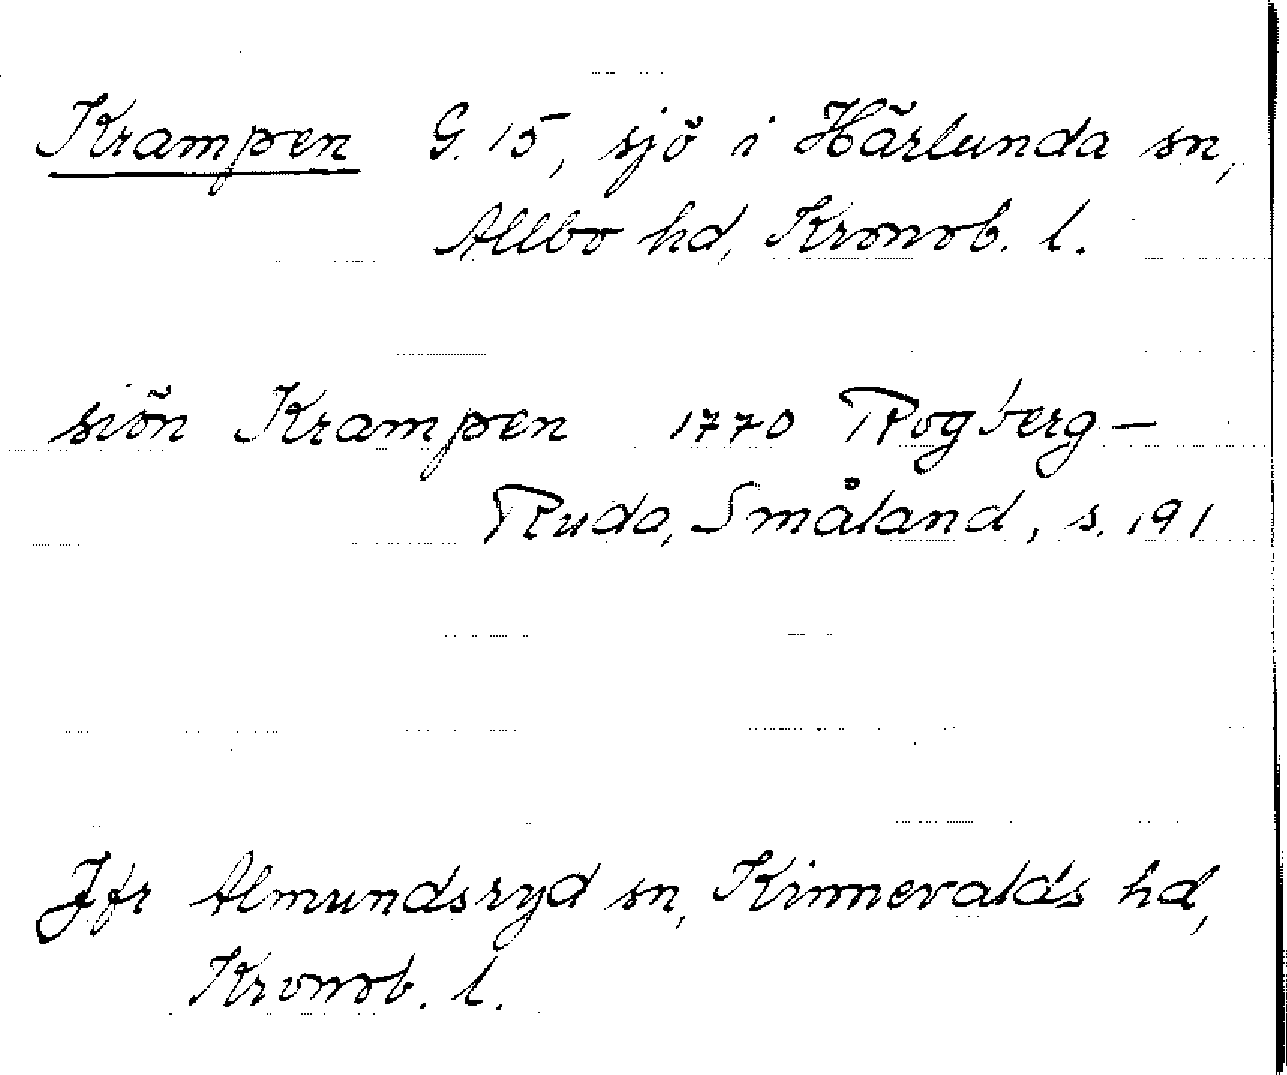 Krampen G. 15, sjö i Härlunda sn,
Allbo hd, Kronob. l.
siön Krampen 1770 Rogberg-
Ruda, Småland, s. 191
Jfr Almundsryd sn, Kinnevalds hd,
Kronob. l.